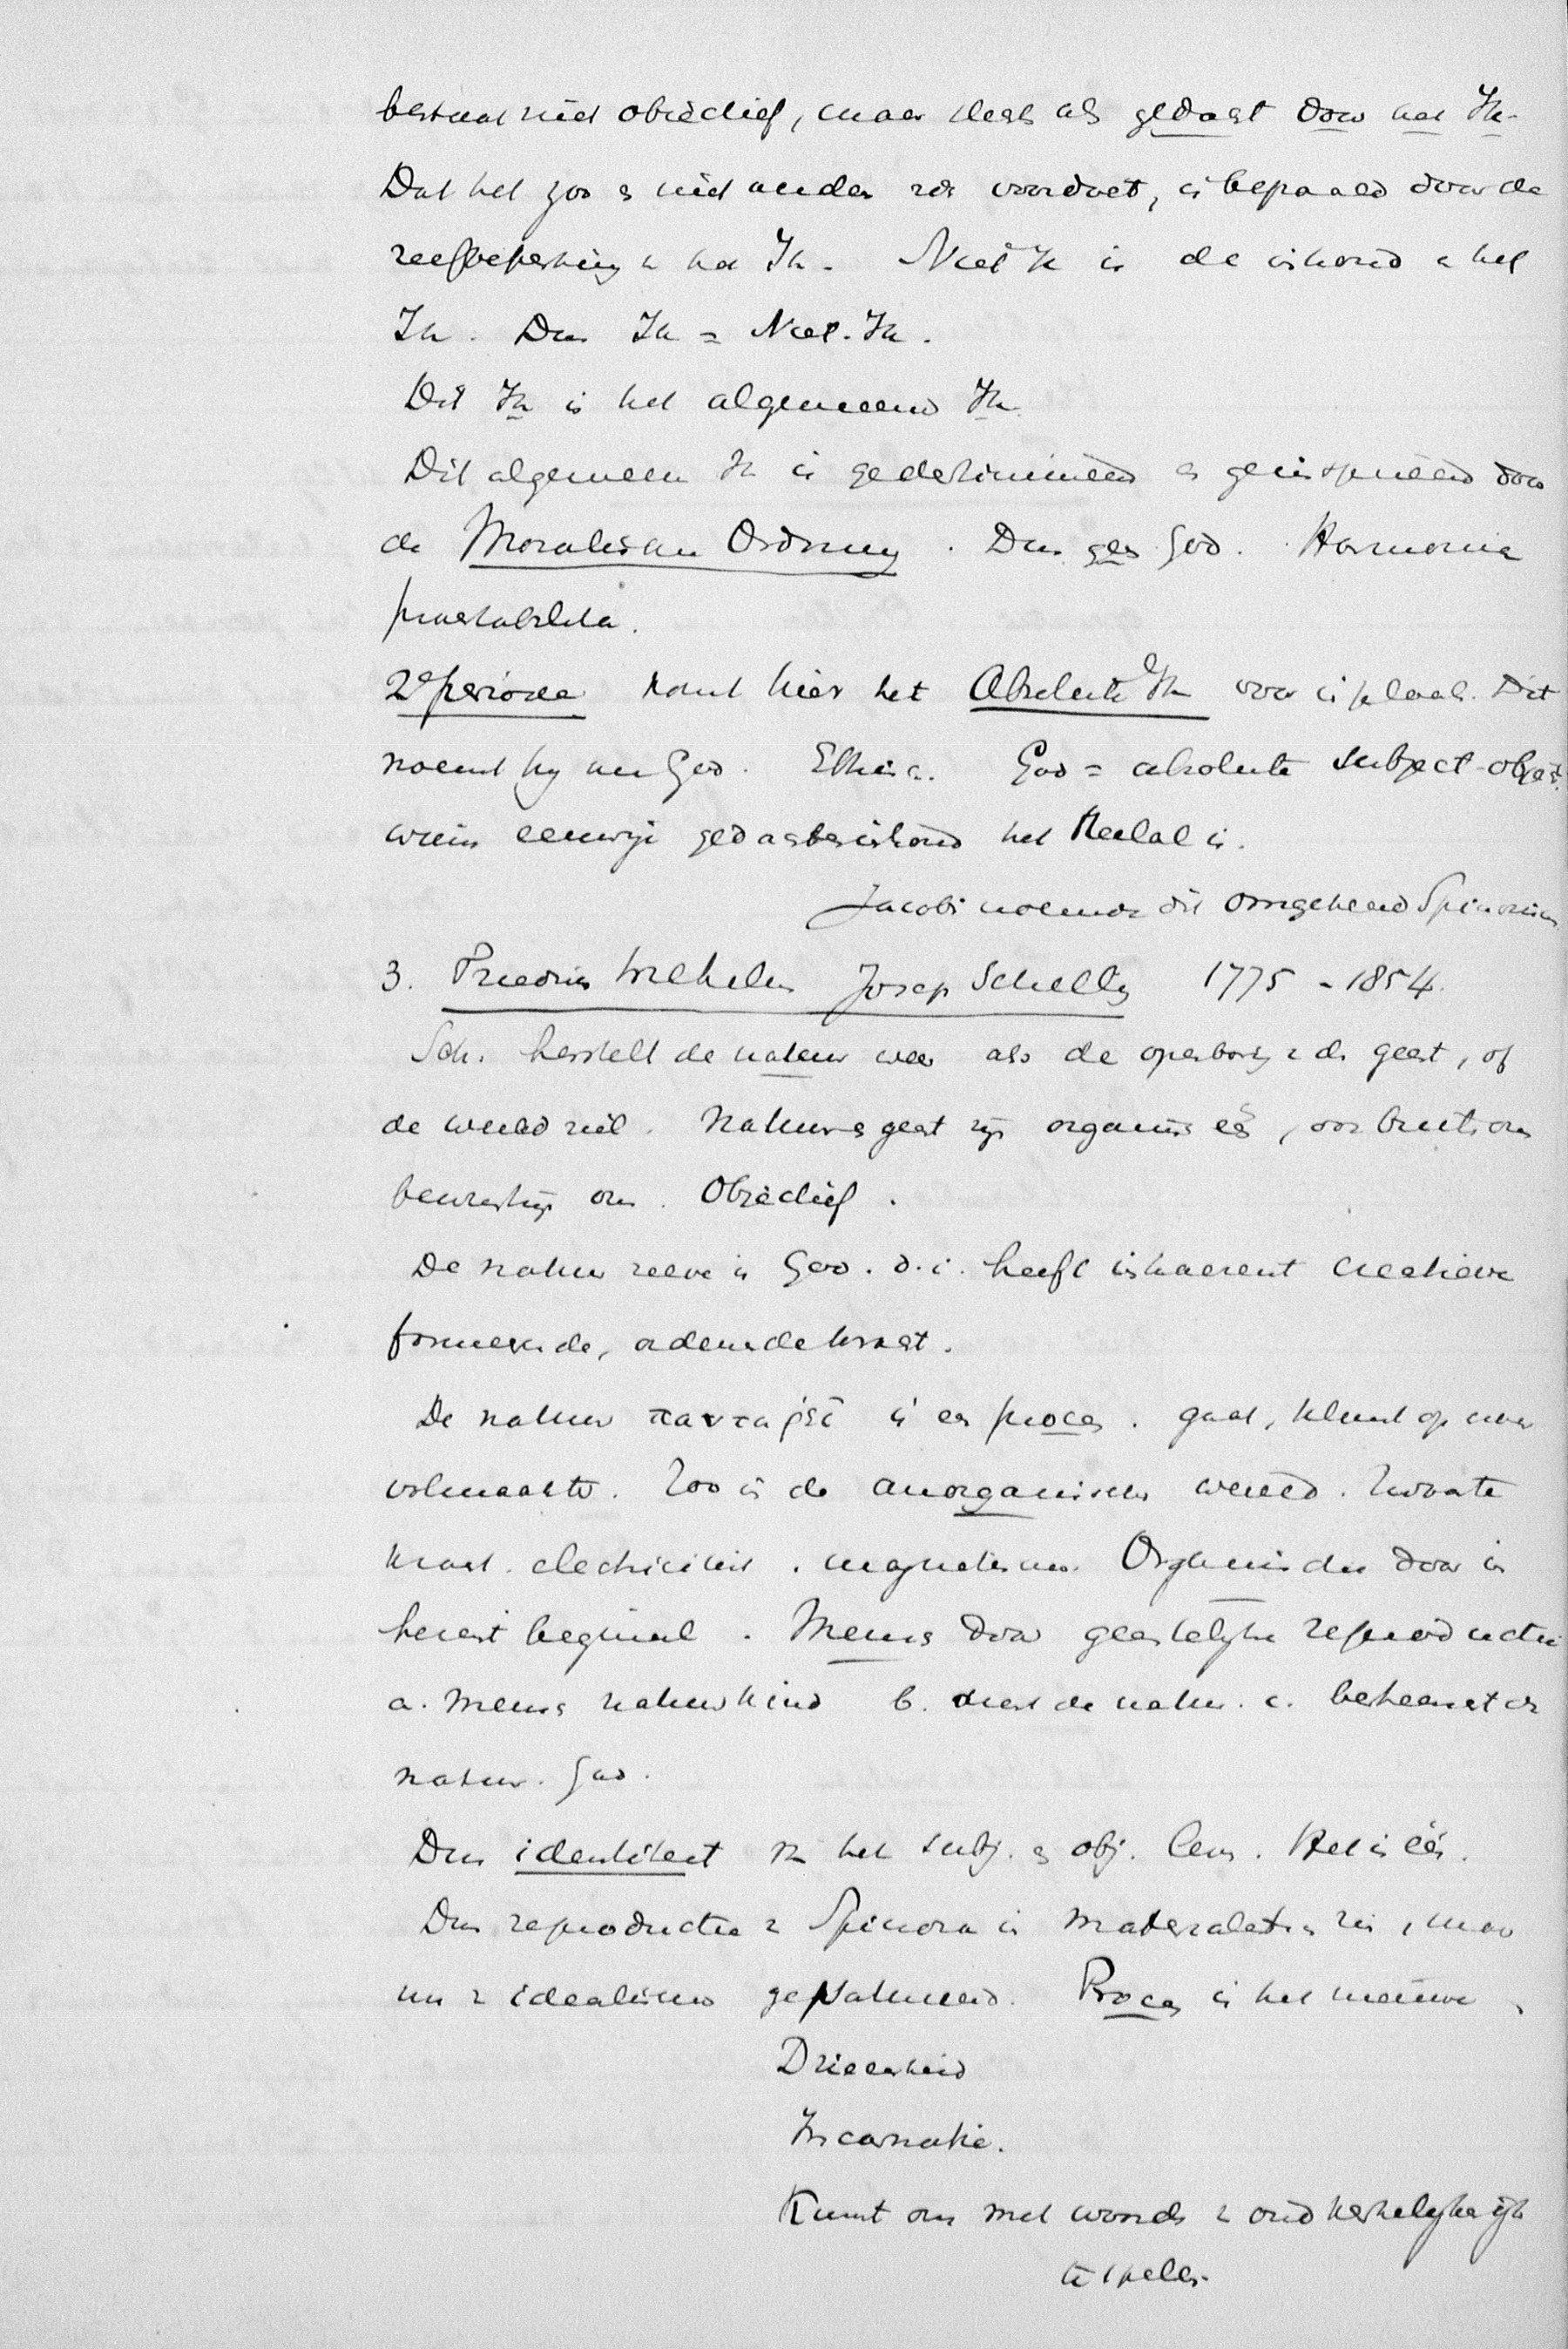 bestaat niet objectief, maar slechts als gedacht door het Ik.
Dat het zoo & niet anders zich voordoet, is bepaald door de
zelfbeperking v het Ik. Niet Ik is de inhoud v het
Ik. Dus Ik = Niet-Ik.
Dit Ik is het algemeene Ik.
Dit algemeen Ik is gedetermineerd & geinspireerd door
de Moralischen Ordnung. Dus geen God. Harmonia
praestabilita.
2e periode komt hier het Absolute Ik voor in plaats. Dit
noemt hij nu God. Ethica. God = absolute subject-object
wiens eeuwige gedachteninhoud het Heelal is.
Jacobi noemde dit omgekeerd Spinozism
3. Friedrich Wilhelm Josep Schelling 1775 - 1854.
Sch. herstelt de natuur weer als de openbaring v de geest, of
de wereldziel. Natuur & geest zijn organisch één, ook buiten ons
bewustzijn om. Objectief.
De natuur zelve is God. d.i. heeft inhaerent creatieve
formeerende, ordenende kracht.
De natuur παντα ρεῖ is een proces. gaat, klimt op naar
volmaakte. Zoo is de anorganische wereld. Zwaarte
kracht. electriciteit. magnetisme. Organische door in
haerent beginsel. Mensch door geestelijke reproductie
a. Mensch natuurkind b. dient de natuur. c. beheerscht de
natuur. God.
Dus identiteit v het subj. & obj. Eens. Het is één.
Dus reproductie v Spinoza in materialistische zin, maar
nu v idealisme. Proces is het nieuwe.
Drieenheid
Incarnatie.
Kunst om met woorden v oud kerkelijke ijk
te spelen.